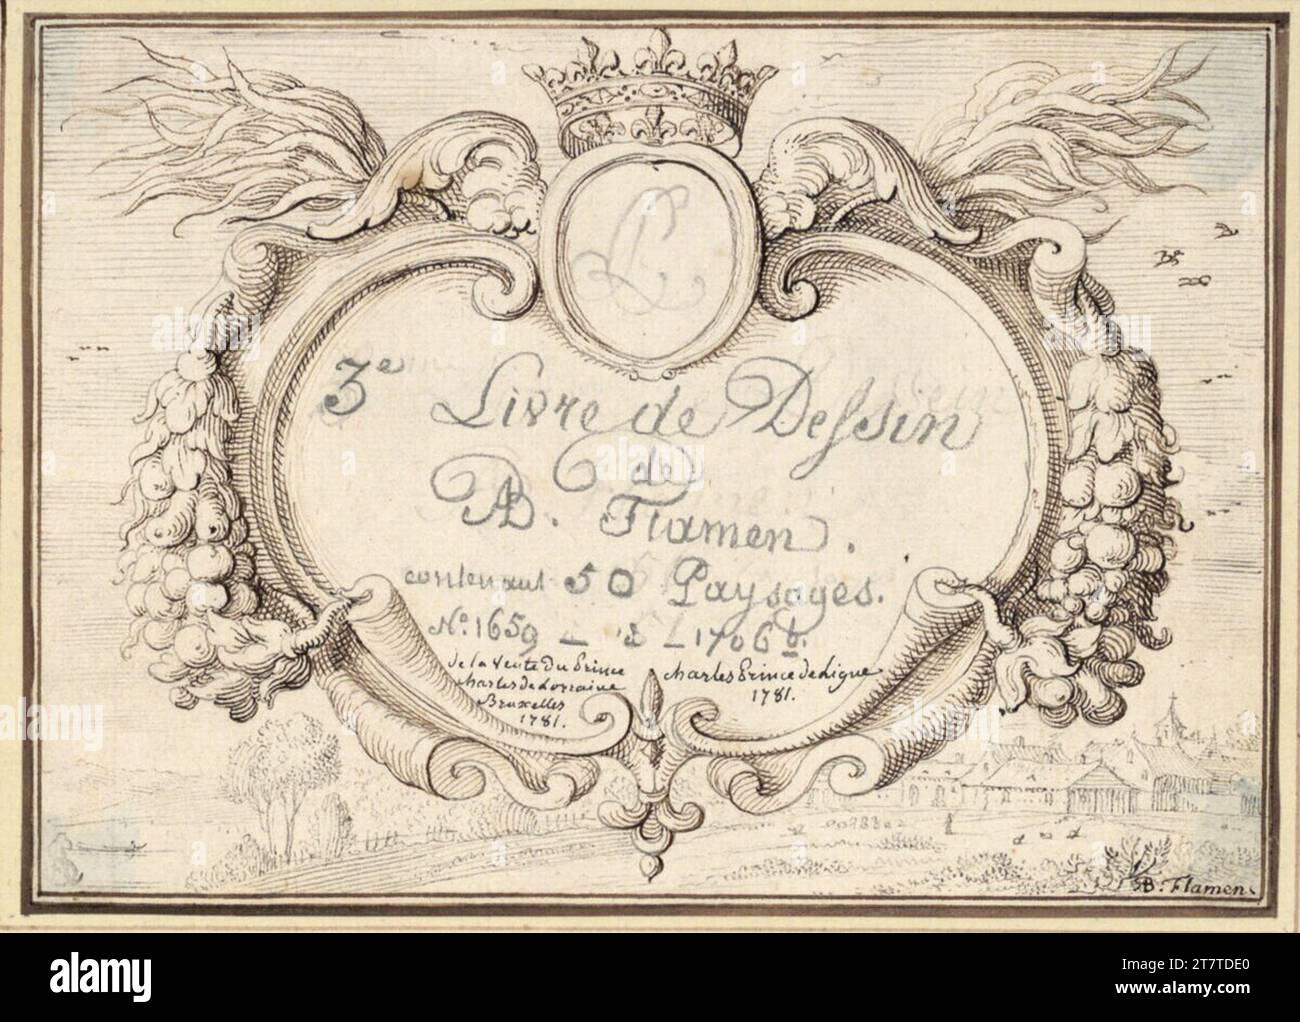 L
3e Livre de Dessin
de
AB. Flamen.
contenant 50 Paysages.
No. 1659 — à — 1706 b.
de la Vente du Prince
Charles de Lorraine
Bruxelles
1781.
Charles Prince de Ligne
1781.
AB. Flamen.
alamy
Image ID: 2T7TDE0
www.alamy.com